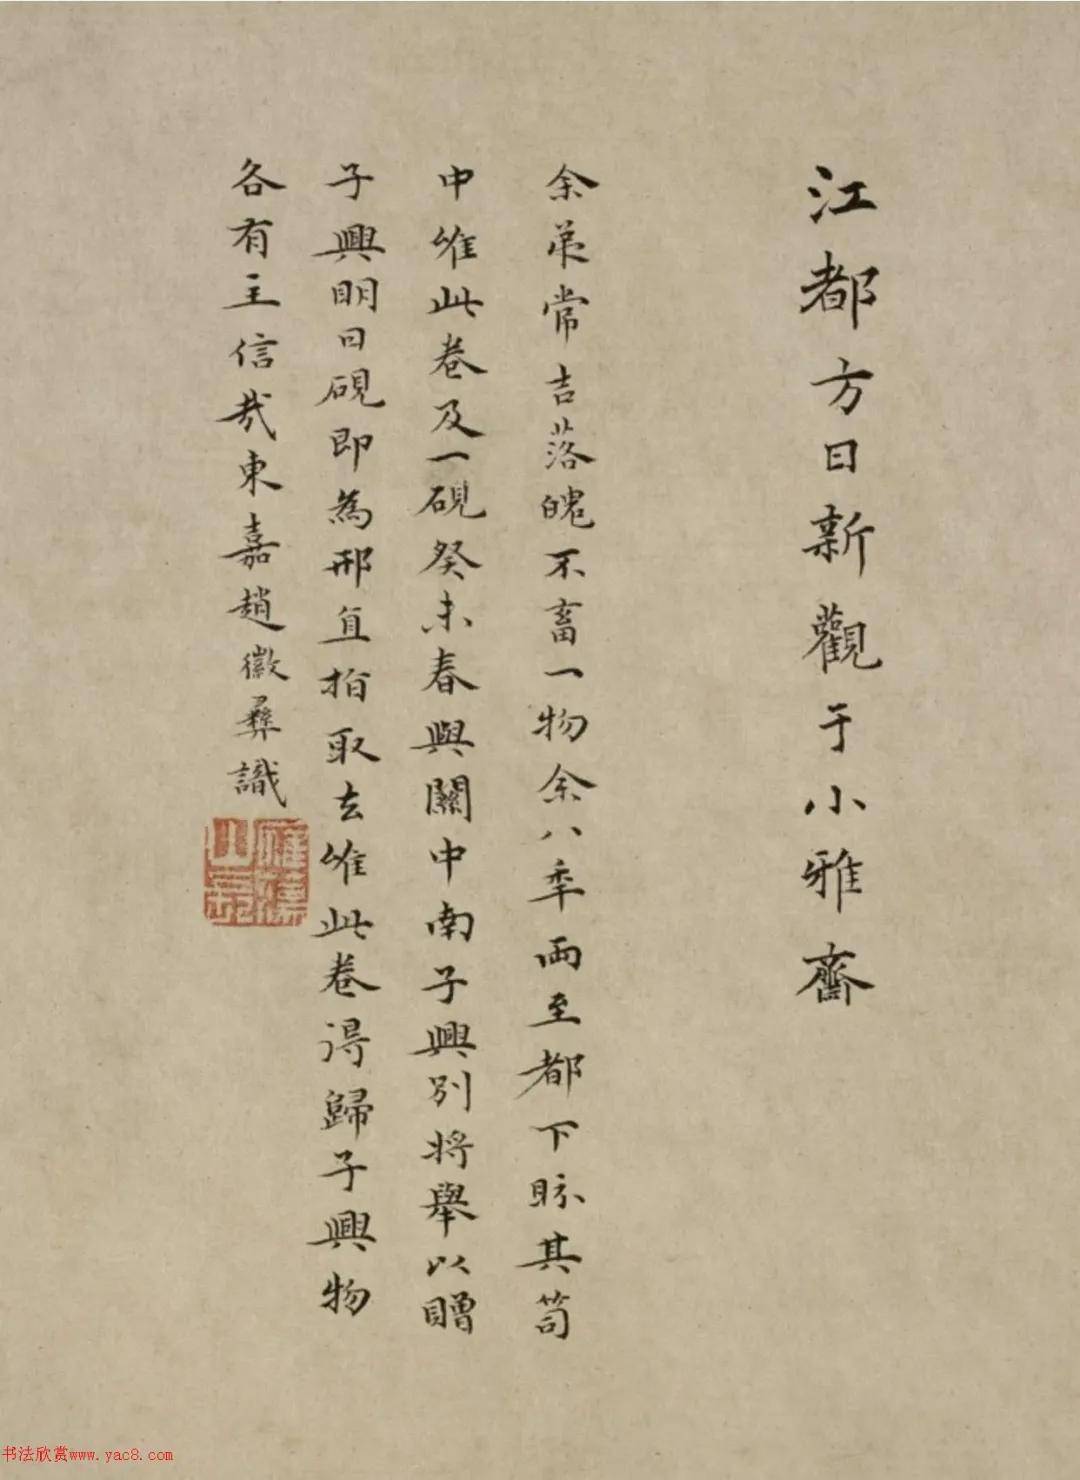 江都方日新觀于小雅齋
余弟常吉落魄不畜一物余八年兩至都下眎其笥
中惟此卷及一硯癸未春與關中南子興別將舉以贈
子興明日硯即為邢直指取去惟此卷得歸子興物
各有主信哉東嘉趙徽彝識
书法欣赏www.yac8.com